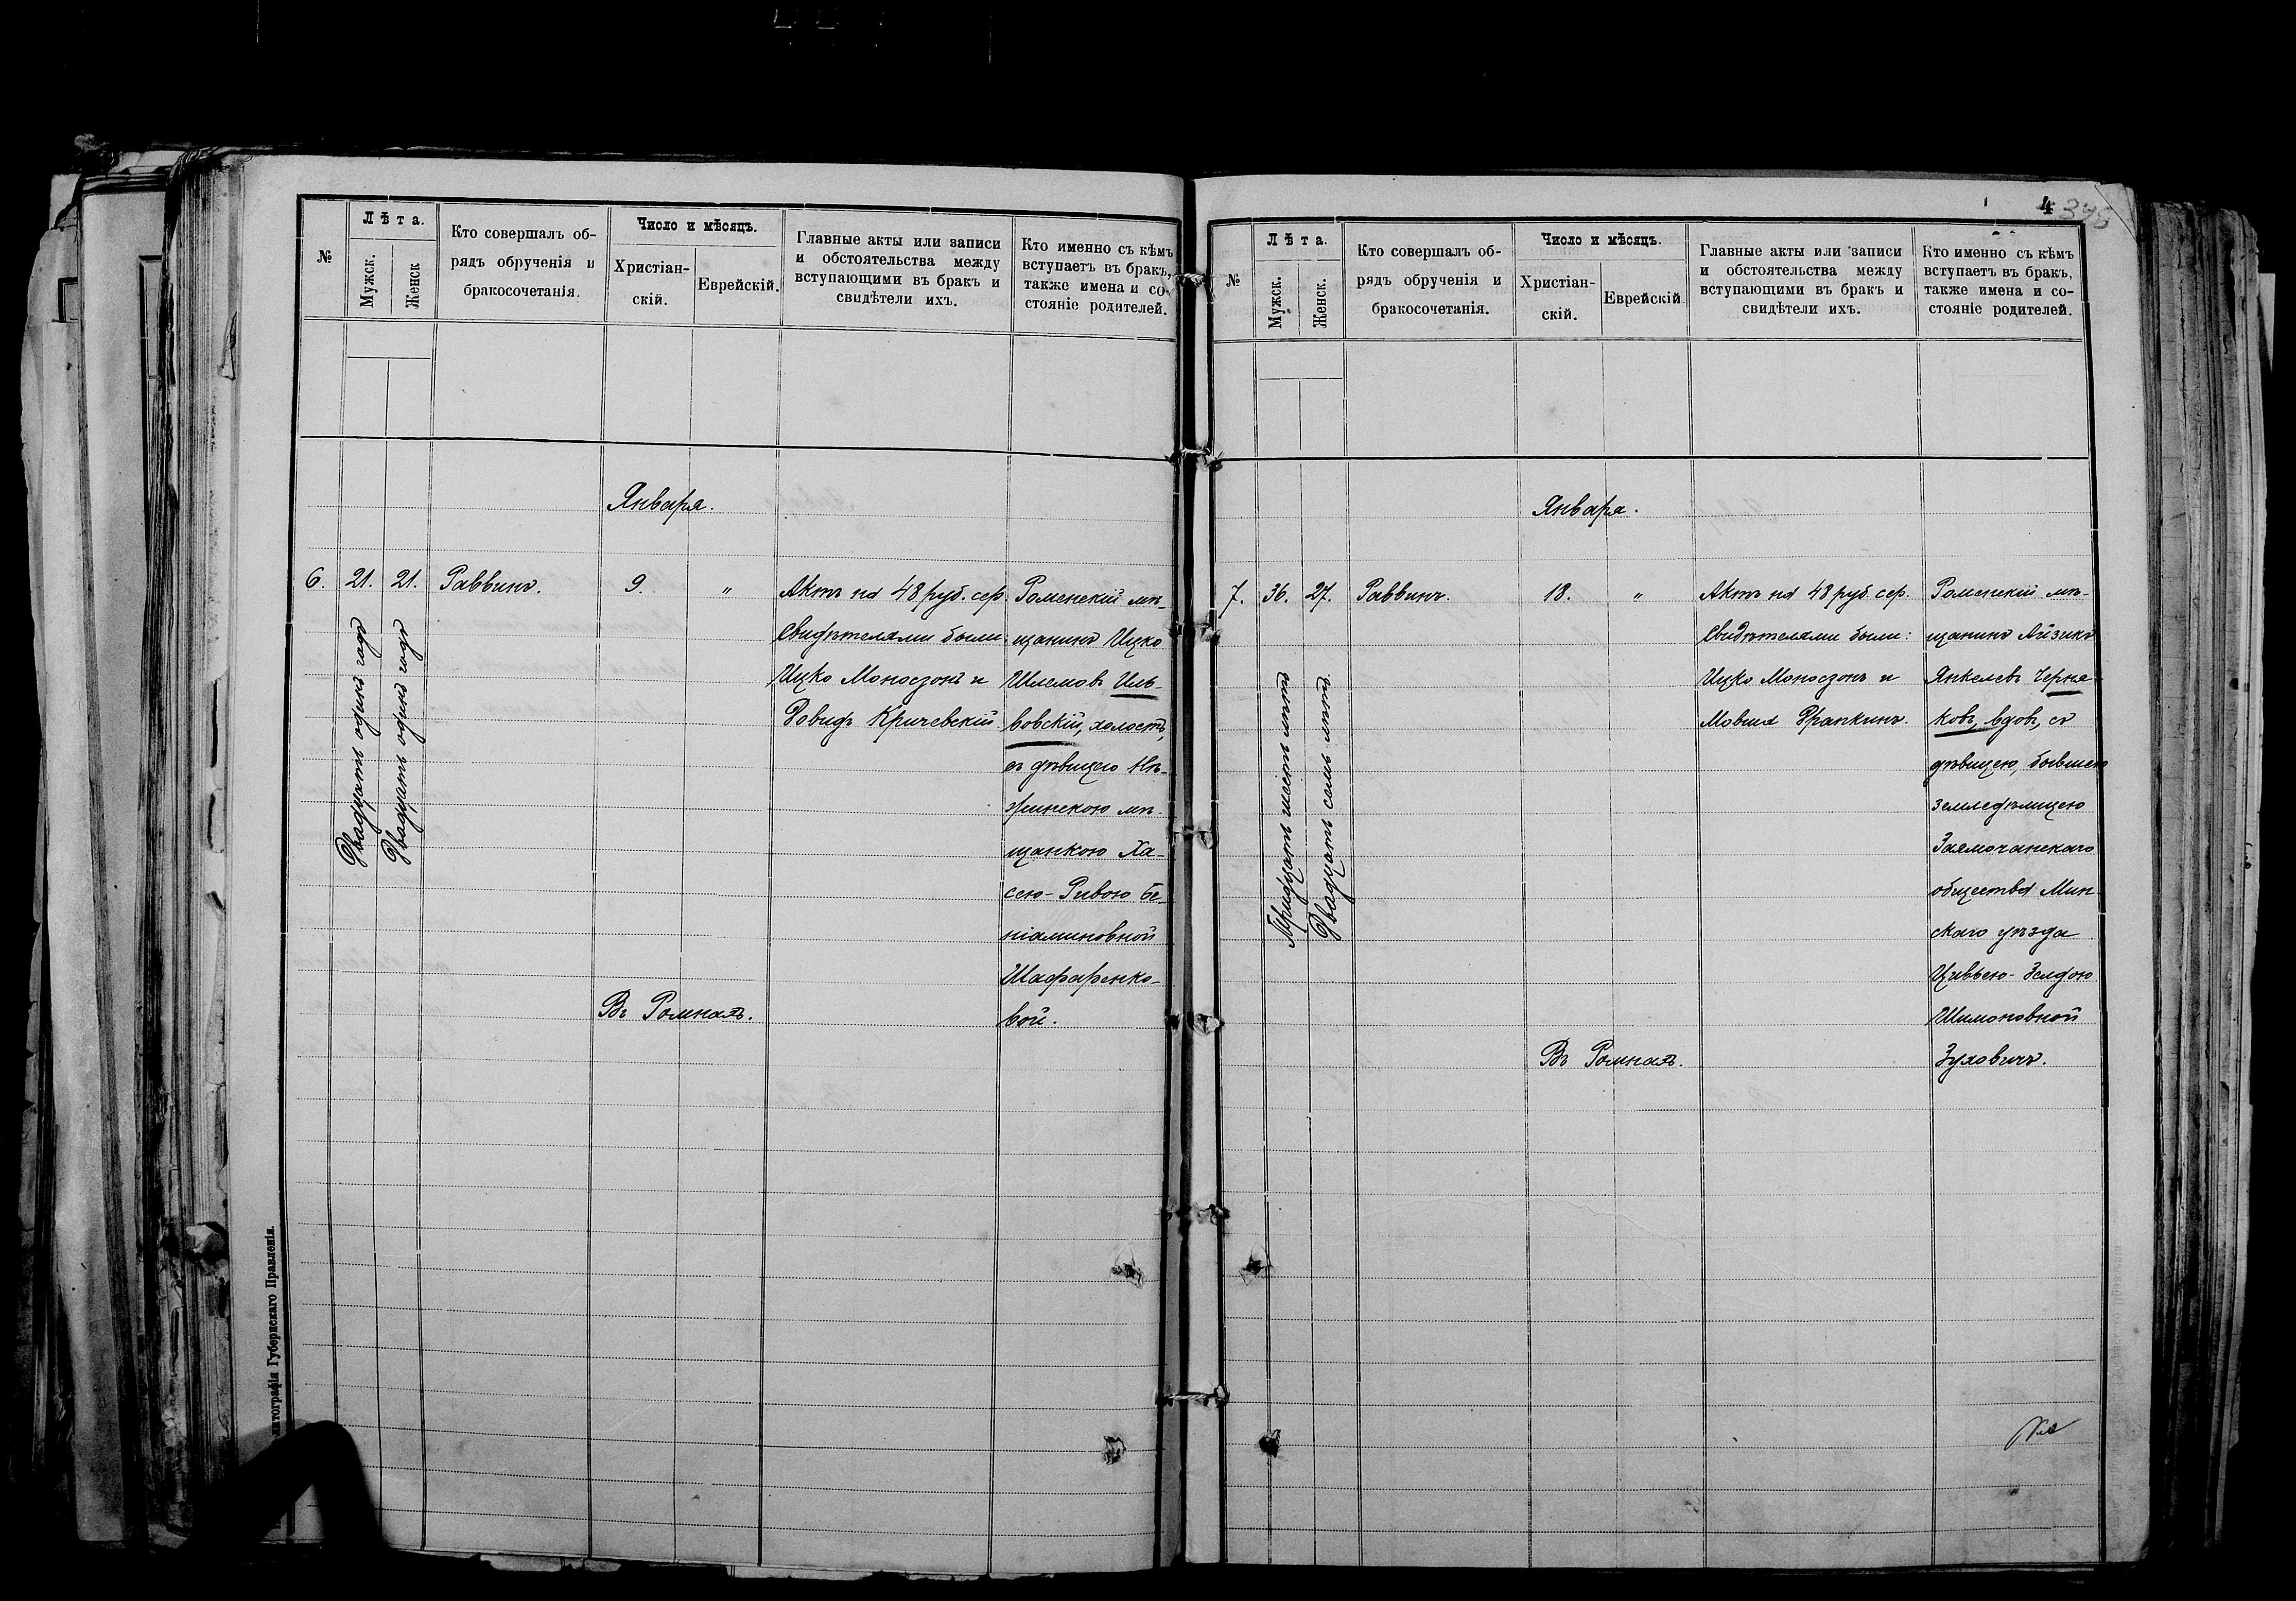 №
Лѣта.
Мужск.
Женск
Кто совершалъ об-
рядъ обрученія и
бракосочетанія.
Число и мѣсяцъ.
Христіан-
скій.
Еврейскій.
Главные акты или записи
и обстоятельства между
вступающими въ бракъ и
свидѣтели ихъ.
Кто именно съ кѣмъ
вступаетъ въ бракъ,
также имена и со-
стояніе родителей.
Января.
6.
21.
21.
Двадцать одинъ годъ
Двадцать одинъ годъ
Раввинъ.
9.
"
Въ Ромнахъ.
Актъ на 48 руб. сер.
Свидѣтелями были:
Ицко Моносзонъ и
Довидъ Кричевскій.
Роменскій мѣ-
щанинъ Ицко
Шлемовъ Иль-
вовскій, холостъ,
съ дѣвицею Нѣ-
жинскою мѣ-
щанкою Ха-
сею-Ривою Бе-
ніаминовной
Шафаренко-
вой.
Губернскаго Правленія.
4
345
№
Лѣта.
Мужск.
Женск.
Кто совершалъ об-
рядъ обрученія и
бракосочетанія.
Число и мѣсяцъ.
Христіан-
скій.
Еврейскій
Главные акты или записи
и обстоятельства между
вступающими въ бракъ и
свидѣтели ихъ.
Кто именно съ кѣмъ
вступаетъ въ бракъ,
также имена и со-
стояніе родителей.
Января.
7.
36.
27.
Тридцать шесть лѣтъ
Двадцать семь лѣтъ
Раввинъ.
18.
"
Въ Ромнахъ.
Актъ на 48 руб. сер.
Свидѣтелями были:
Ицко Моносзонъ и
Мовша Франкинъ.
Роменскій мѣ-
щанинъ Айзикъ
Янкелевъ Черня-
ковъ, вдовъ, съ
дѣвицею, бывшею
земледѣлицею
Заямочанскаго
общества Мин-
скаго уѣзда
Цивьею-Зелдою
Шимоновной
Зуховичъ.